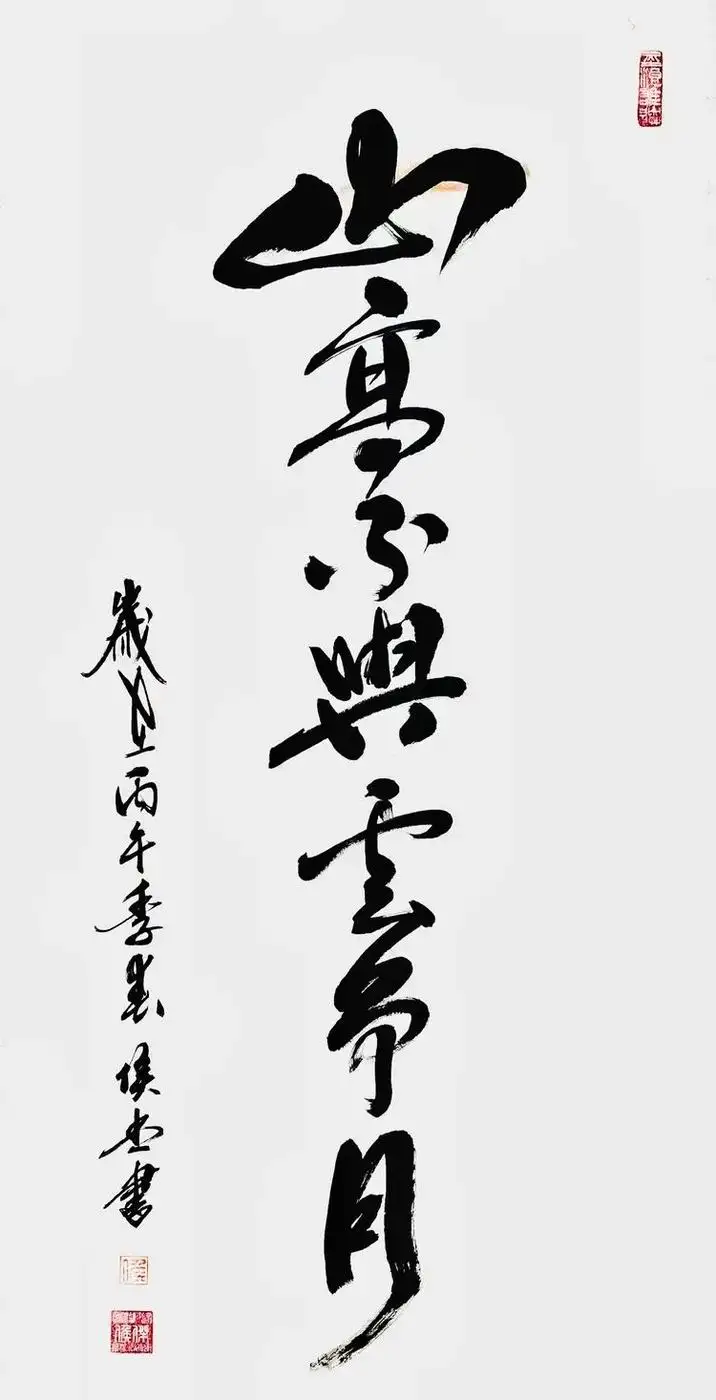 山高不與雲争月
歲在丙午季春侯書